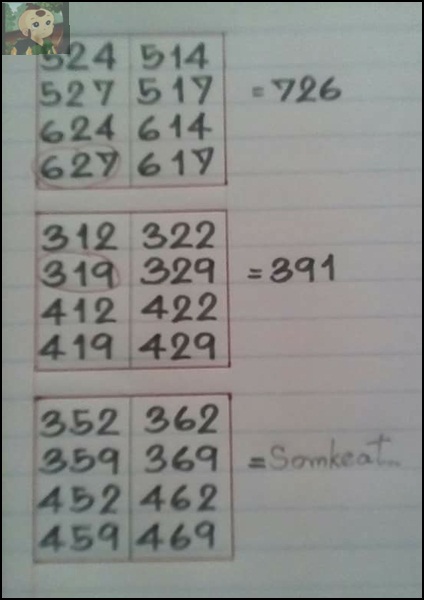 524 514
527 517 = 726
624 614
627 617
312 322
319 329 = 391
412 422
419 429
352 362
359 369 = Somkeat..
452 462
459 469